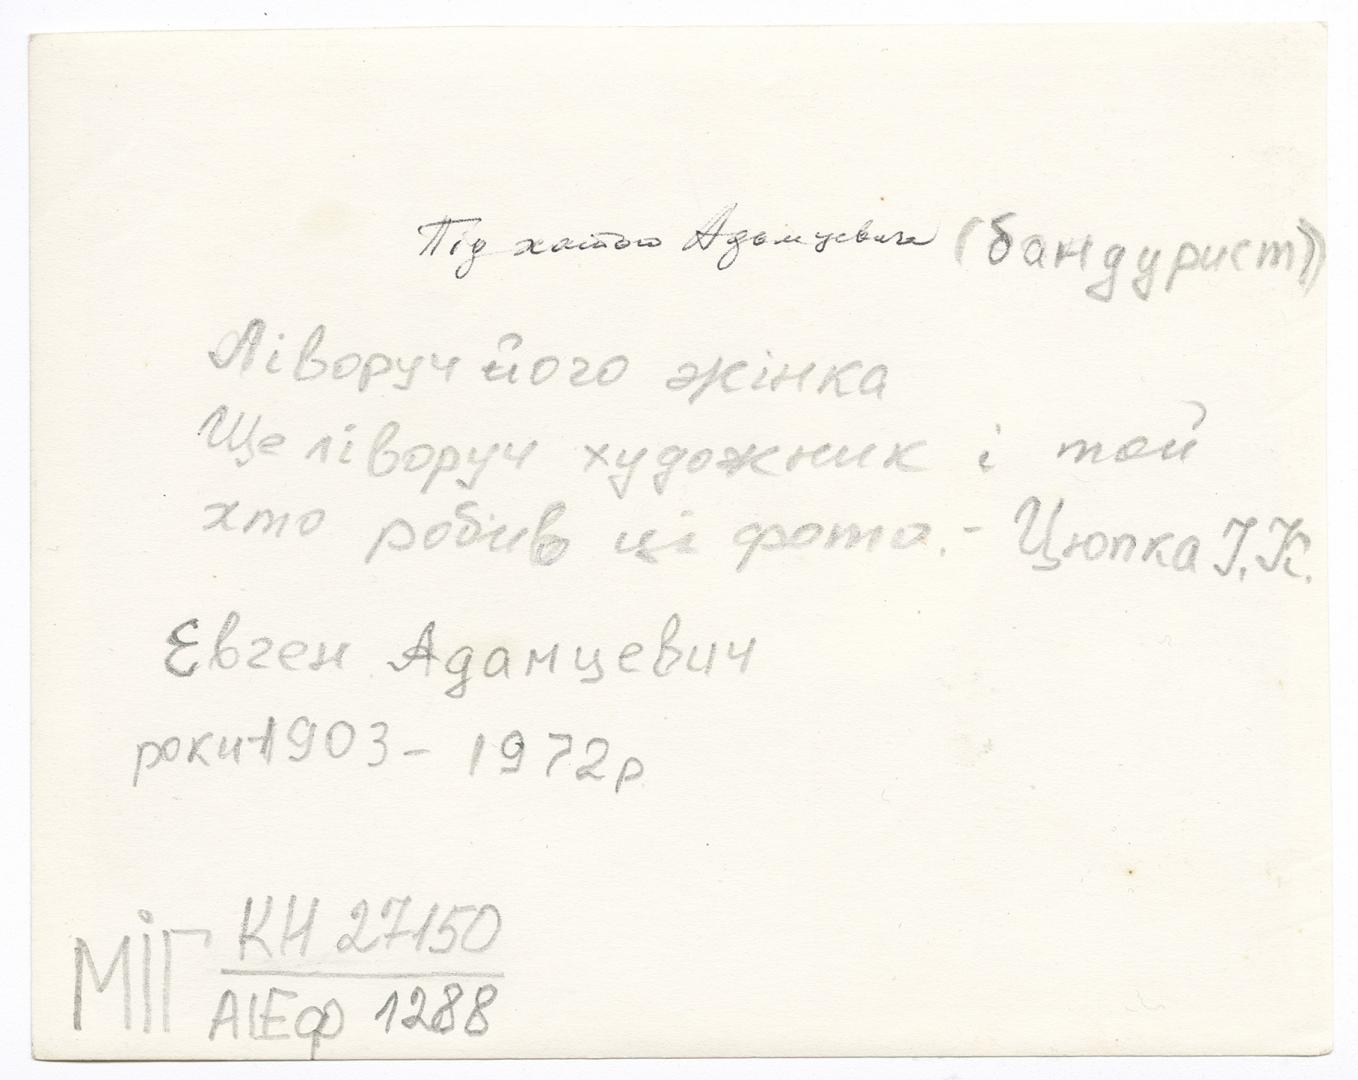 Під хатою Адамцевича (бандурист)
Ліворуч його жінка
Ще ліворуч художник і той
хто робив ці фото. - Цюпка І.К.
Євген Адамцевич
роки-1903 - 1972р
МІГ КН 27150
АІЕф 1288